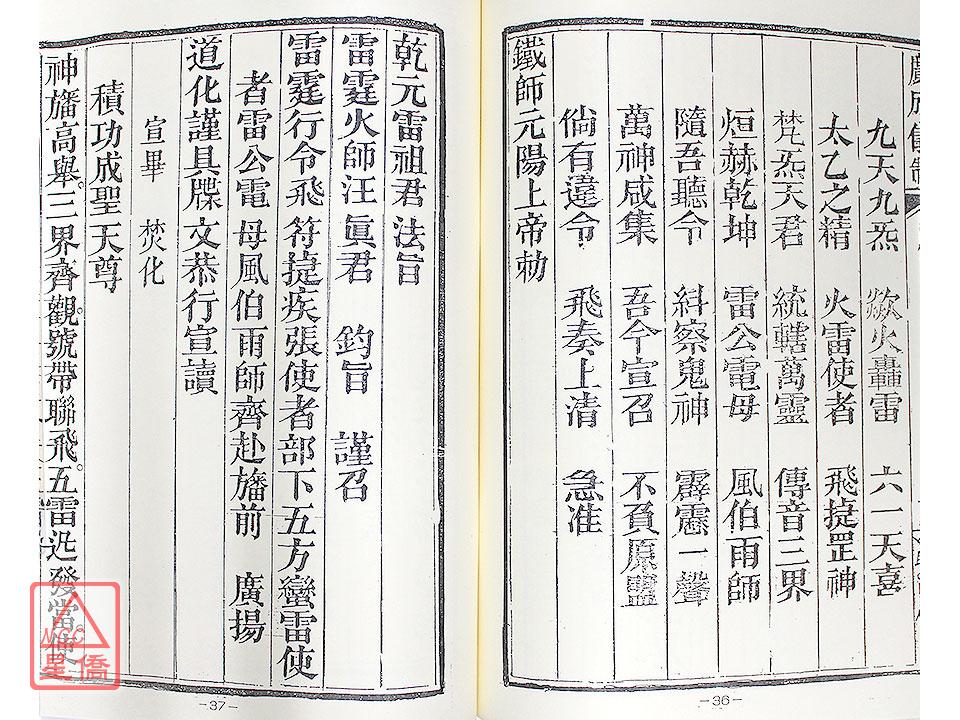 廣成儀制
九天九炁 歘火轟雷 六一天喜
太乙之精 火雷使者 飛捷罡神
梵炁天君 統轄萬靈 傳音三界
烜赫乾坤 雷公電母 風伯雨師
隨吾聽令 糾察鬼神 霹靂一聲
萬神咸集 吾今宣召 不負原靈
倘有違令 飛奏上清 急准
鐵師元陽上帝勅
-36-
乾元雷祖君 法旨
雷霆火師汪真君 鈞旨 謹召
雷霆行令飛符捷疾張使者部下五方蠻雷使
者雷公電母風伯雨師齊赴旛前 廣揚
道化謹具牒文恭行宣讀
宣畢 焚化
積功成聖天尊
神旛高舉。三界齊觀。號帶聯飛。五雷迅發當使
-37-
星僑